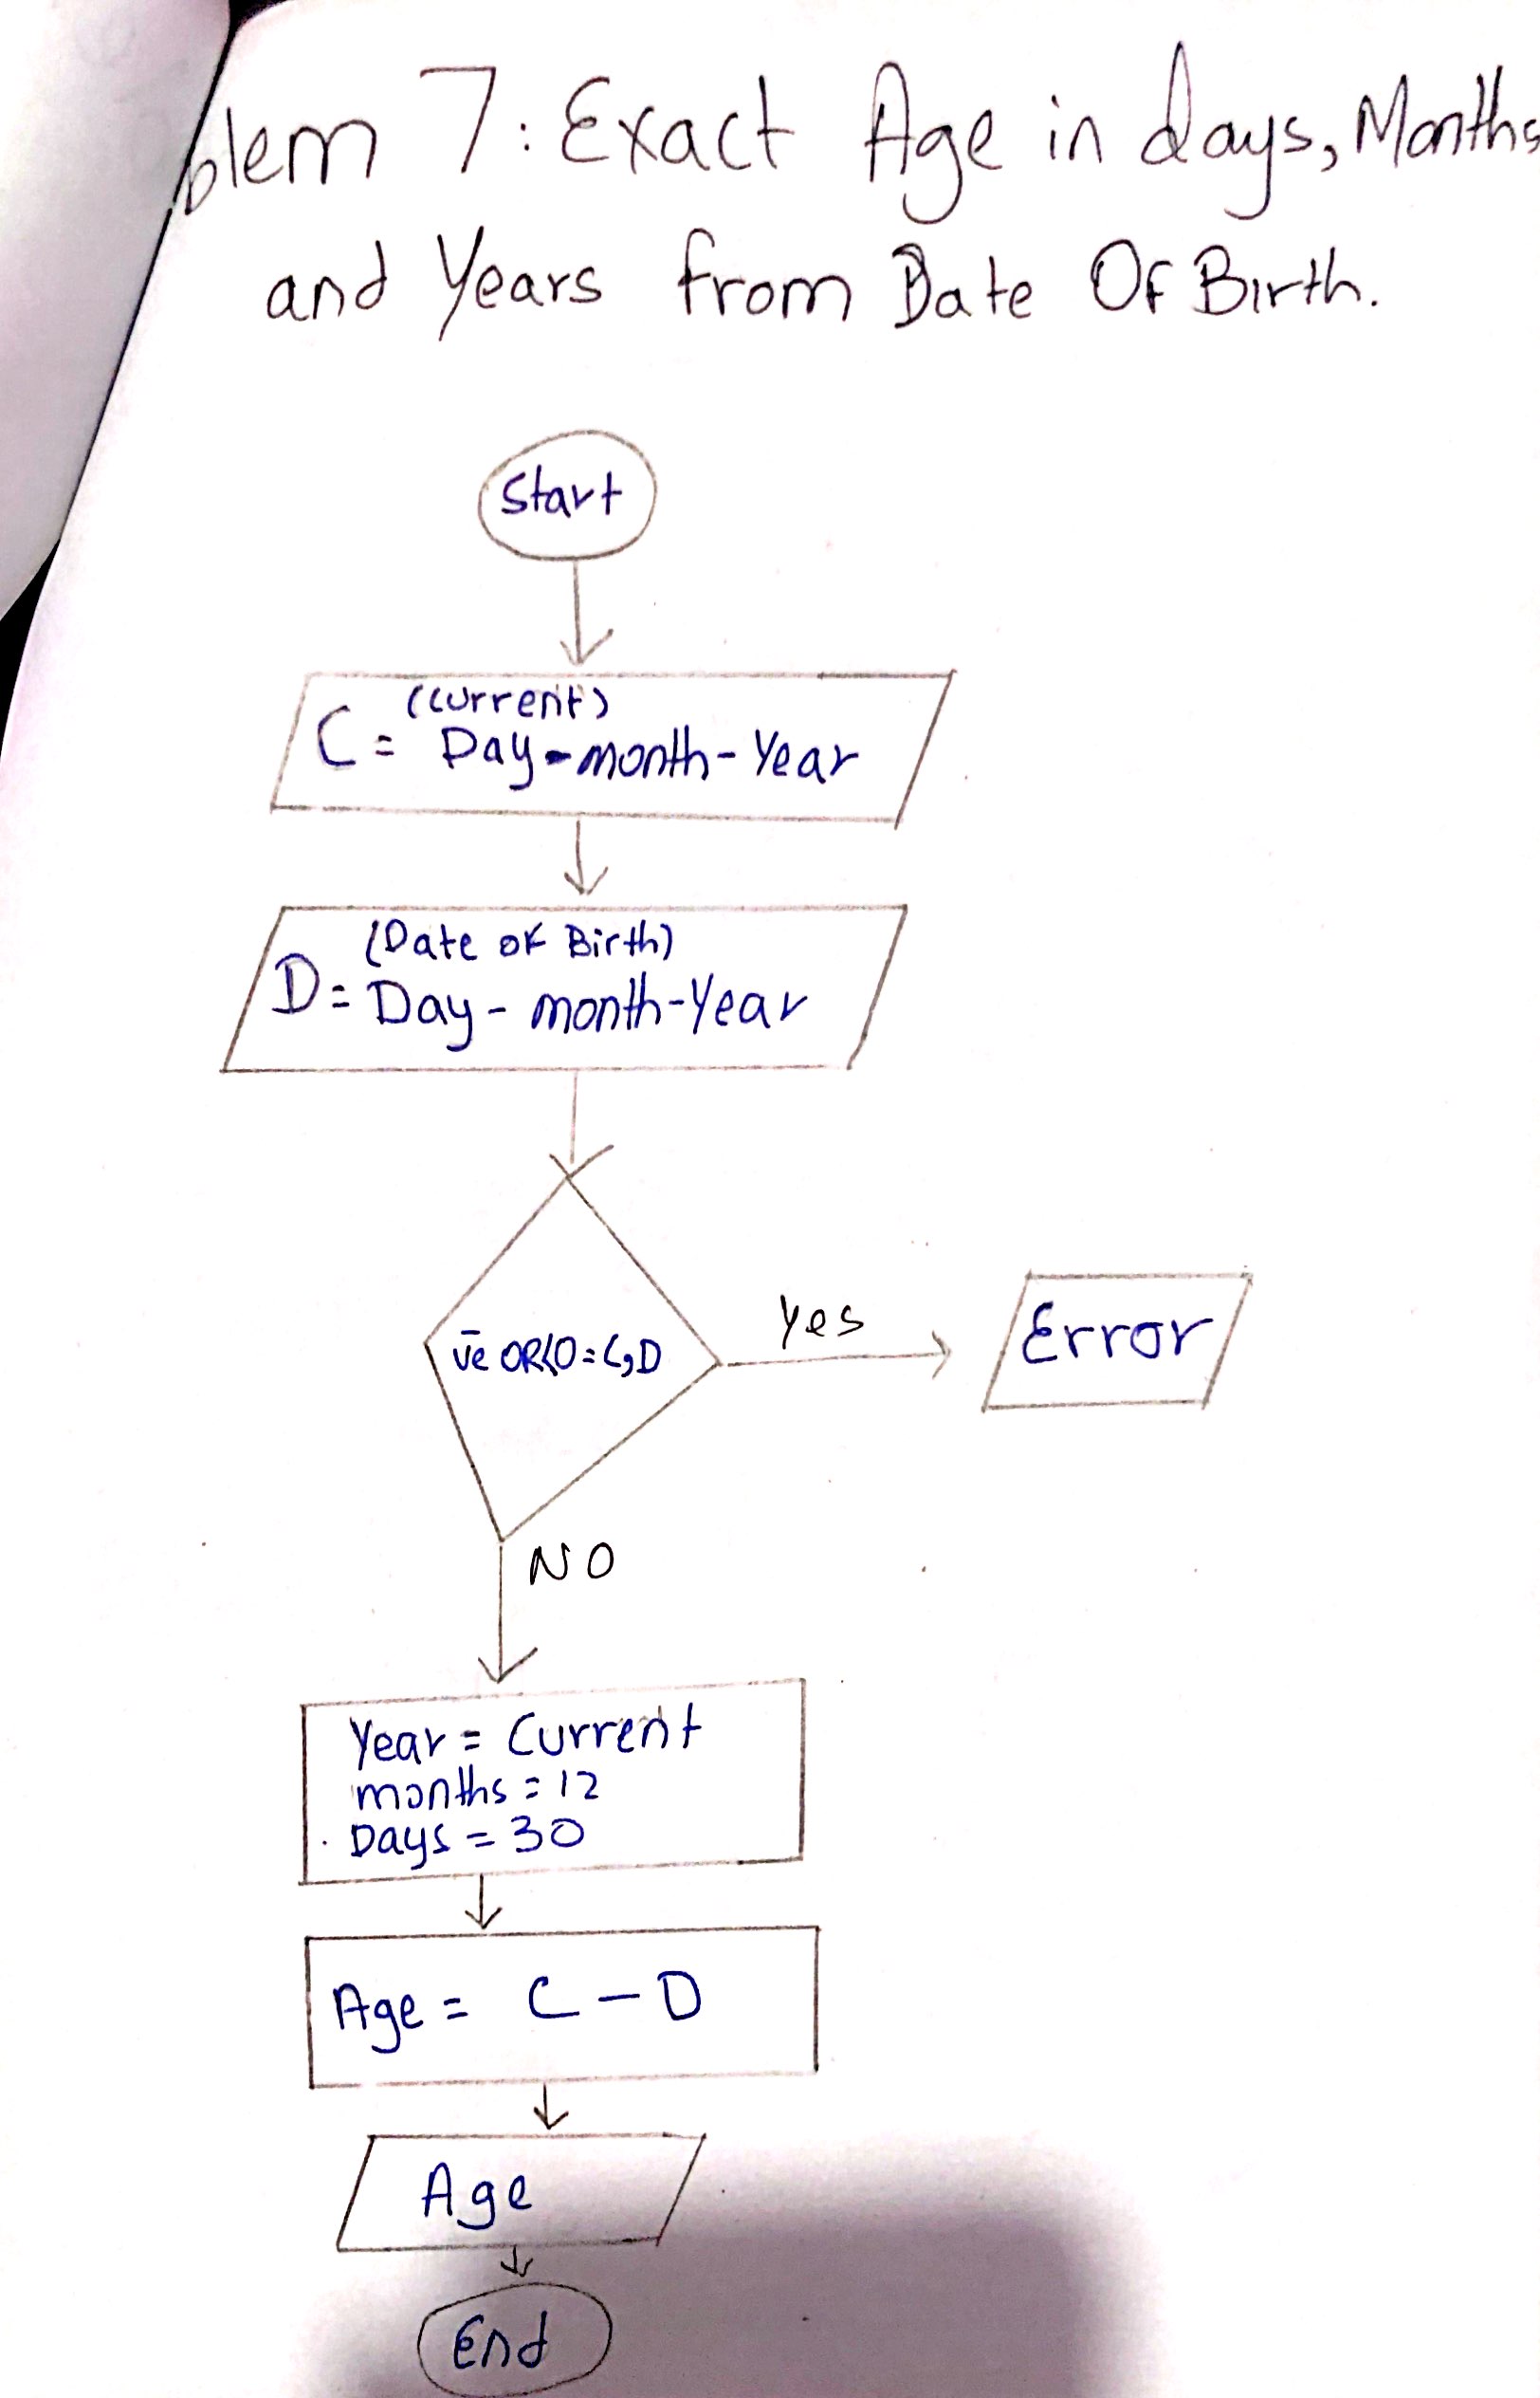 blem 7: Exact Age in days, Months
and Years from Date Of Birth.
Start
(Current)
C = Day - month - Year
(Date of Birth)
D = Day - month - Year
v̄e OR
Yes
Error
NO
Year = Current
months = 12
Days = 30
Age = C - D
Age
End